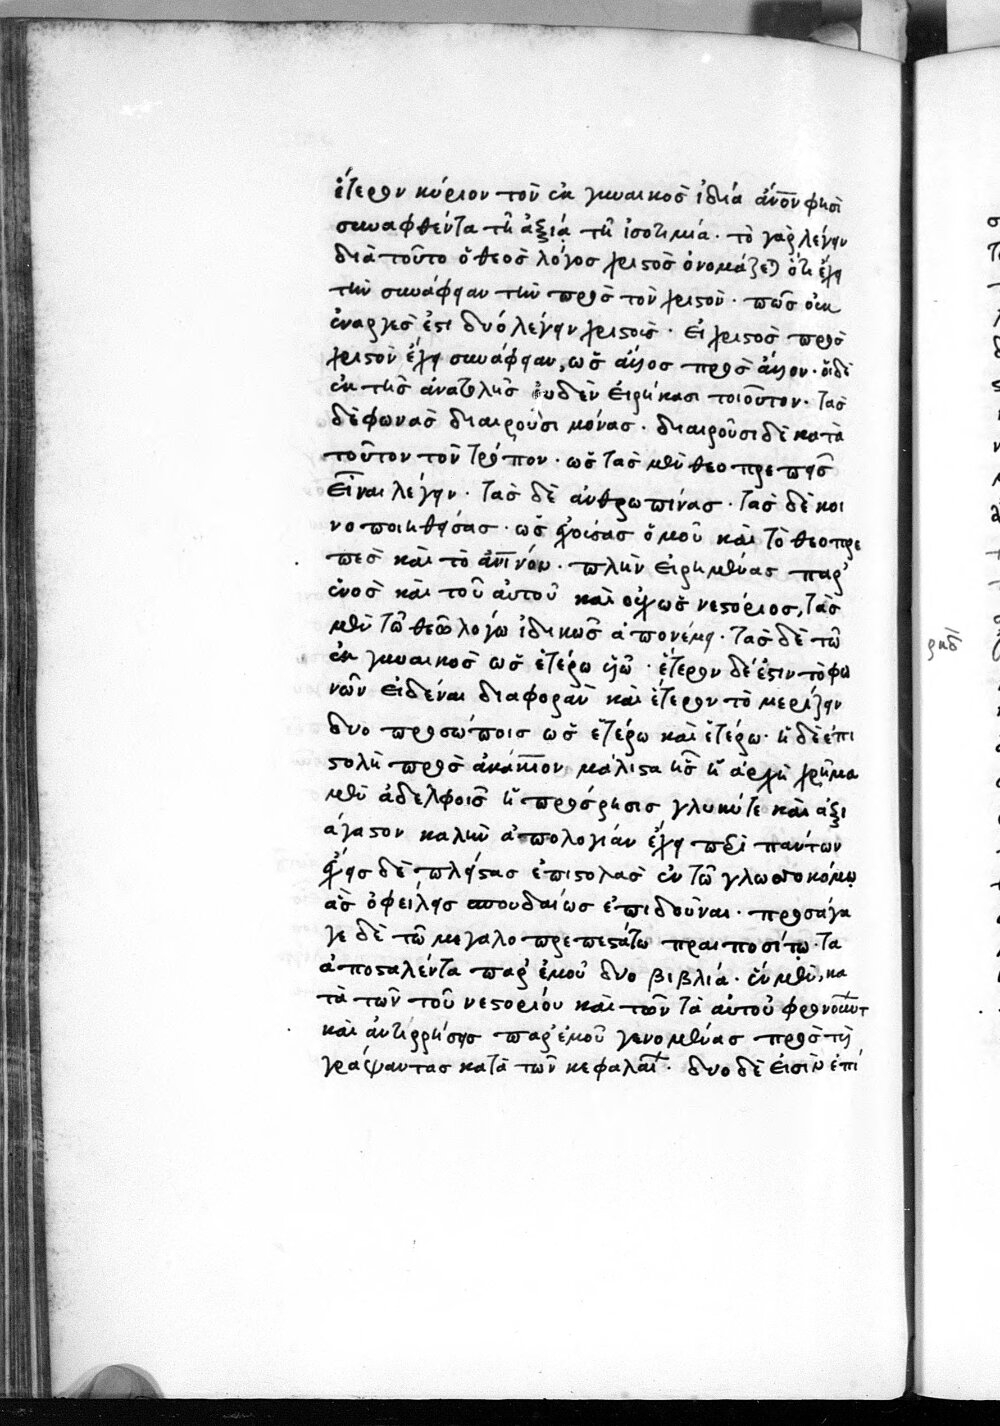 ἕτερον κύριον τὸν ἐκ γυναικὸς ἰδία ἄνον φησὶ
συναφθέντα τῆ ἀξιά τῆ ἰσοτιμιά. τὸ γὰρ λέγειν
διὰ τοῦτο ὁ θεὸς λόγος χριστὸς ὀνομάζεται ὅτι ἔχει
τὴν συνάφειαν τὴν πρὸς τὸν χριστὸν. πῶς οὐκ
ἐναργὲς ἐστι δυό λέγειν χριστοὺς. εἰ χριστὸς πρὸς
χριστὸν ἔχει συνάφειαν, ὡς ἄλλος πρὸς ἄλλον. οἱ δὲ
ἐκ τῆς ἀνατολῆς οὐδὲν εἰρήκασι τοιοῦτον. τὰς
δὲ φωνὰς διαιροῦσι μόνας. διαιροῦσι δὲ κατὰ
τοῦτον τὸν τρόπον. ὡς τὰς μὲν θεοπρεπεῖς
εἶναι λέγειν. τὰς δὲ ἀνθρωπίνας. τὰς δὲ κοι
νοποιηθείσας. ὡς ἐχούσας ὁμοῦ καὶ τὸ θεοπρε
πὲς καὶ τὸ ἀνινόν. πλὴν εἰρημένας παρ'
ἑνὸς καὶ τοῦ αὐτοῦ καὶ οὐχ ὡς νεστόριος, τὰς
μὲν τῶ θεῶ λογω ἰδικῶς ἀπονέμει. τὰς δὲ τῶ
ἐκ γυναικὸς ὡς ἑτέρω υἱῶ. ἕτερον δέ ἐστιν τὸ φω
νῶν εἰδέναι διαφορὰν καὶ ἕτερον τὸ μερίζειν
δυο προσώποις ὡς ἑτέρω καὶ ἑτέρω. ἡ δὲ ἐπι
στολὴ πρὸς ἀκάκιον μάλιστα ἧς ἡ ἀρχὴ χρῆμα
μὲν ἀδελφοῖς ἡ πρόσρησις γλυκύ τε καὶ ἀξι
άγαστον καλὴν ἀπολογίαν ἔχει περὶ παντων
ἔχεις δὲ πλείστας ἐπιστολὰς ἐν τῶ γλωσσοκόμω
ἃς ὀφείλεις σπουδαίως ἐπιδοῦναι. προσάγα
γε δὲ τῶ μεγαλοπρεπεστάτω πραιποσίτω. τα
ἀποσταλέντα παρ' ἐμοῦ δυο βιβλιά. ἓν μὲν, κα
τὰ τῶν τοῦ νεστορίου καὶ τῶν τὰ αὐτοῦ φρονούντ
καὶ ἀντιρρήσεις παρ' ἐμοῦ γενομένας πρὸς τοὺς
γράψαντας κατὰ τῶν κεφαλαί. δυο δὲ εἰσὶν ἐπί